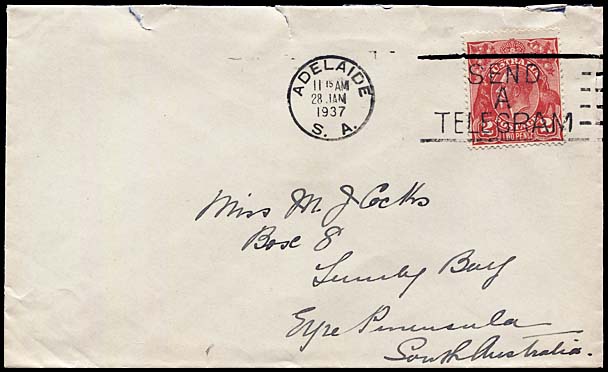 ADELAIDE
11 15 AM
28 JAN
1937
S. A.
SEND
A
TELEGRAM
2 2
TWO PENCE
Miss M J Cocks
Box 8
Tumby Bay
Eyre Peninsula
South Australia.